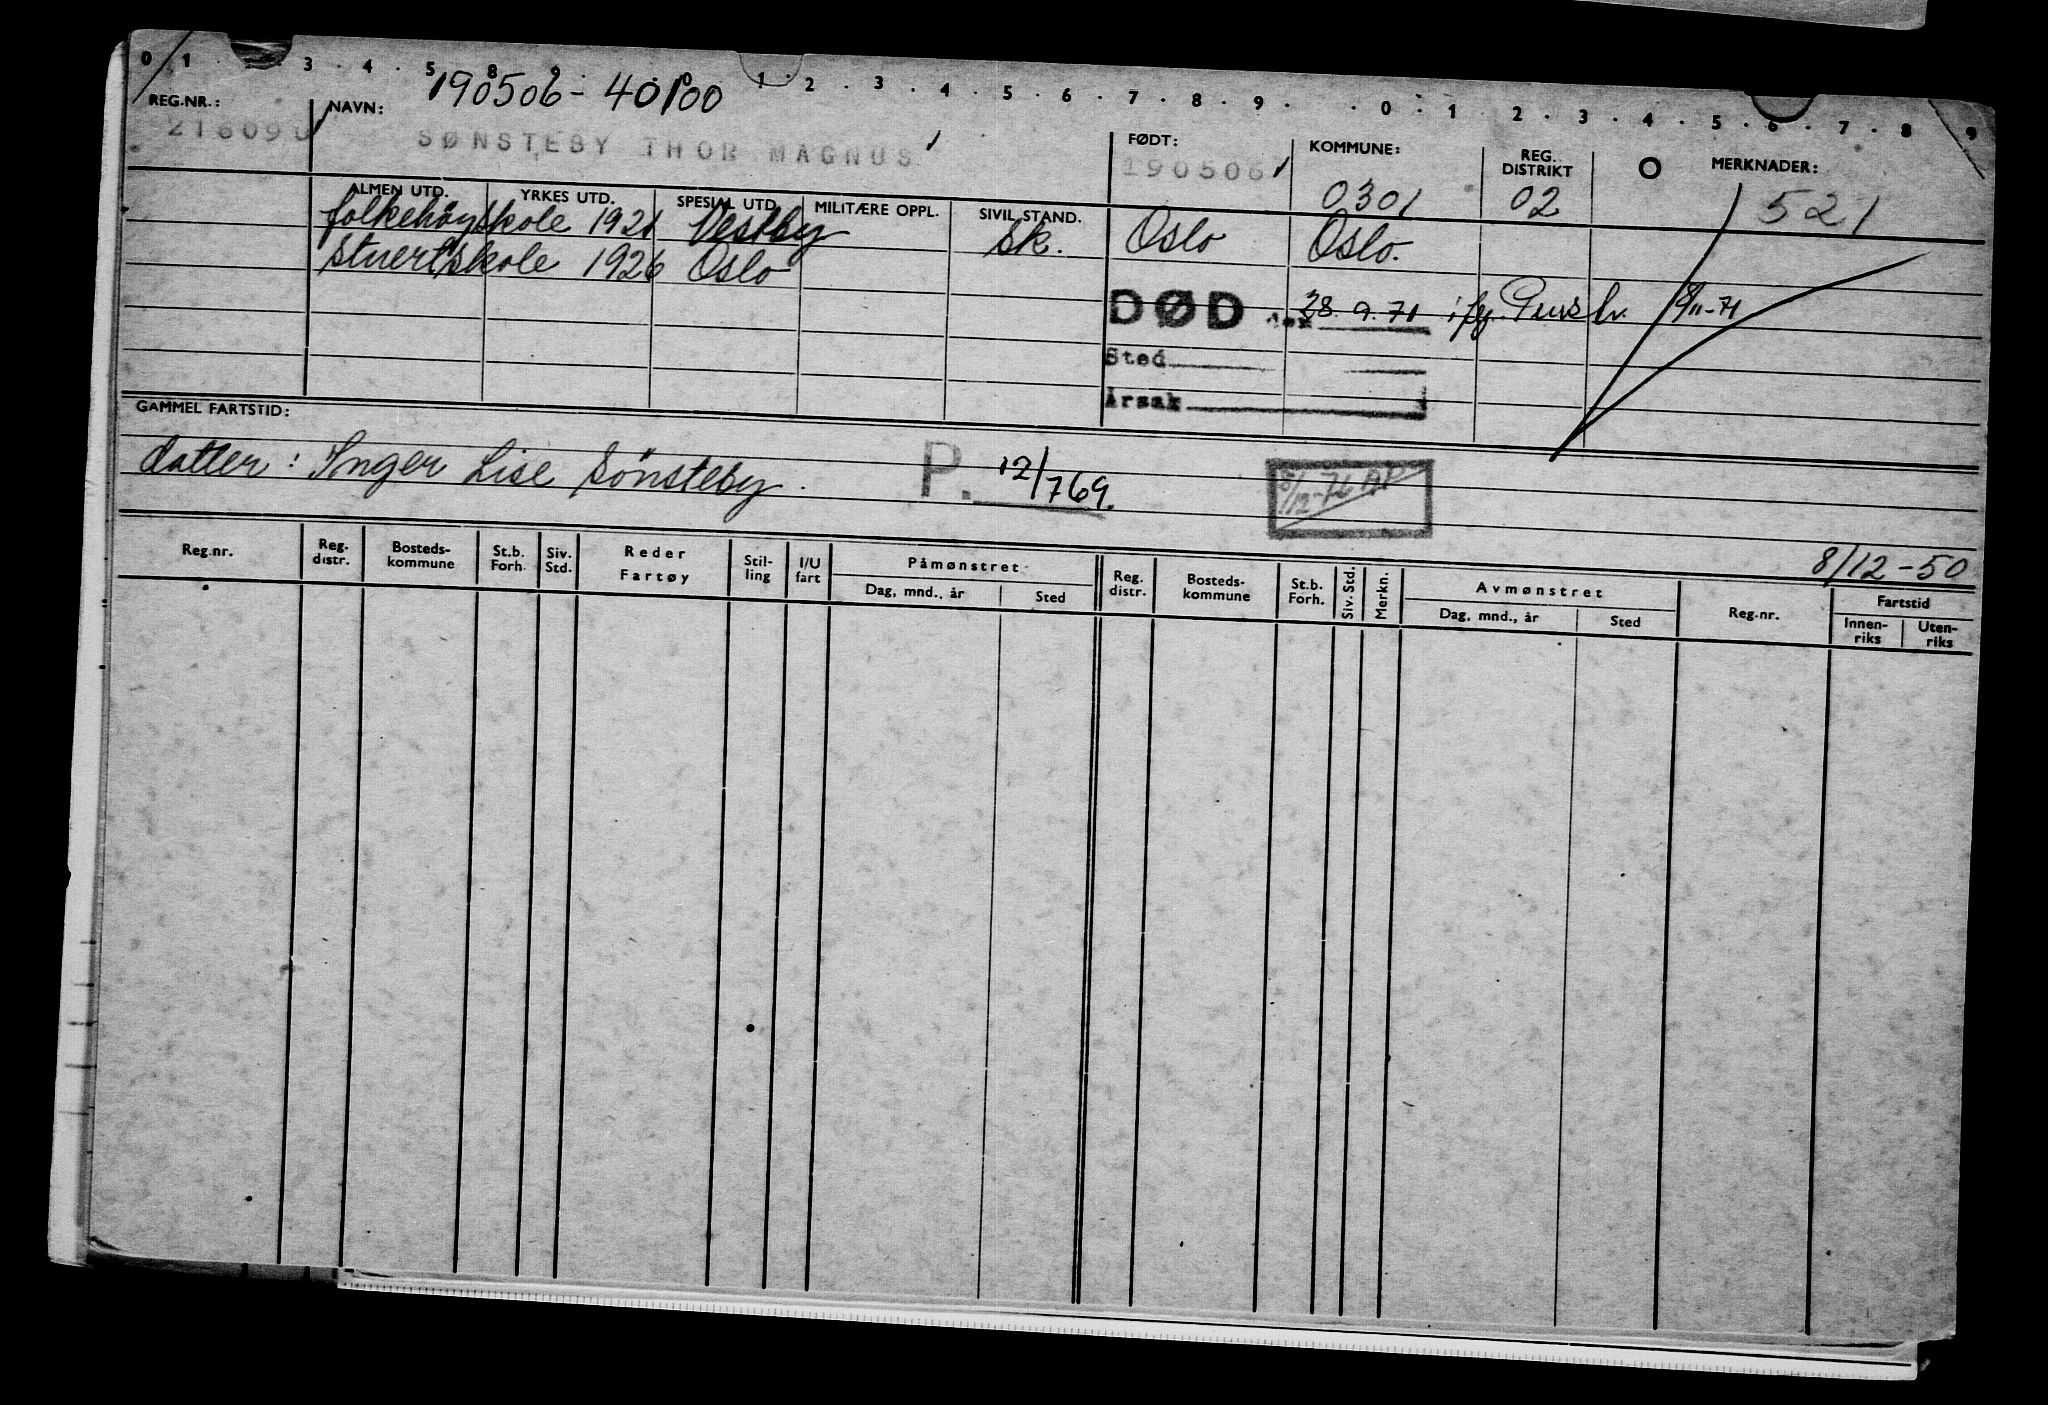 0 1 . . 3 . 4 . 5 . 8 . 9 . . 0 . 1 . 2 . 3 . 4 . 5 . 6 . 7 . 8 . 9 . . 0 . 1 . 2 . 3 . 4 . 5 . 6 . 7 . 8 9
REG.NR.: NAVN: 190506 - 40100
SØNSTEBY THOR MAGNUS
FØDT: KOMMUNE: REG. DISTRIKT O MERKNADER:
190506 0301 02 521
ALMEN UTD. YRKES UTD. SPESIAL UTD. MILITÆRE OPPL. SIVIL STAND.
folkehöyskole 1921 Vestby sk. Oslo Oslo.
stuertskole 1926 Oslo
DØD den 28.9.71 ifg. 8/11-71
Sted
Årsak
GAMMEL FARTSTID:
datter: Inger Lise Sönsteby. P. 12/769.
8/12-50
Reg.nr. Reg. distr. Bosteds-kommune St.b. Forh. Siv. Std. Reder Fartøy Stil-ling I/U fart Påmønstret Dag, mnd., år Sted Reg. distr. Bosteds-kommune St.b. Forh. Siv. Std. Merkn. Avmønstret Dag, mnd., år Sted Reg.nr. Fartstid Innen-riks Uten-riks